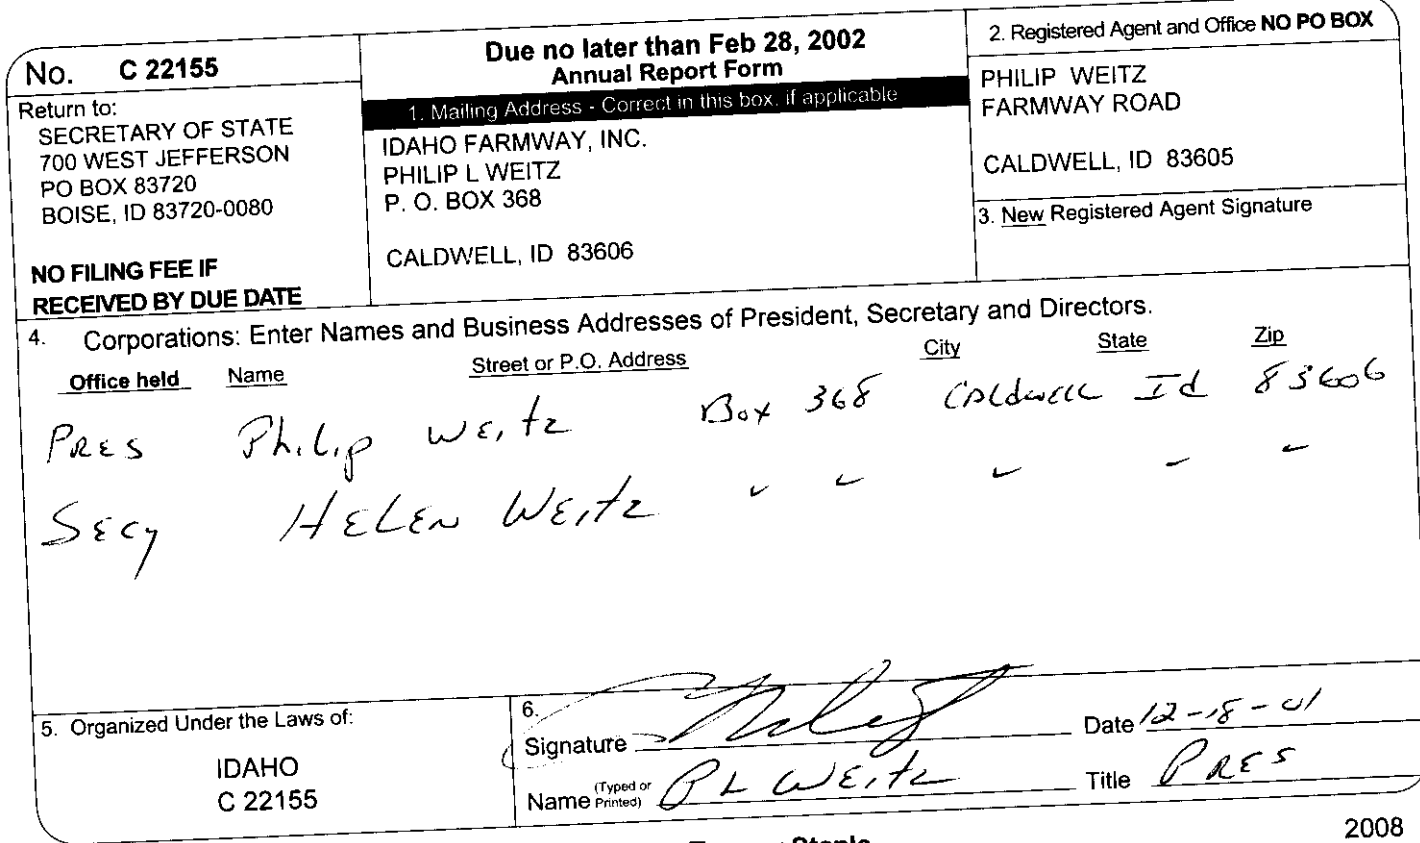 No. C 22155
Return to:
SECRETARY OF STATE
700 WEST JEFFERSON
PO BOX 83720
BOISE, ID 83720-0080
NO FILING FEE IF
RECEIVED BY DUE DATE
Due no later than Feb 28, 2002
Annual Report Form
1. Mailing Address - Correct in this box, if applicable
IDAHO FARMWAY, INC.
PHILIP L WEITZ
P. O. BOX 368
CALDWELL, ID 83606
2. Registered Agent and Office NO PO BOX
PHILIP WEITZ
FARMWAY ROAD
CALDWELL, ID 83605
3. New Registered Agent Signature
4. Corporations: Enter Names and Business Addresses of President, Secretary and Directors.
Office held Name Street or P.O. Address City State Zip
PRES Philip Weitz Box 368 Caldwell Id 83606
Secy HELEN Weitz " " " " "
5. Organized Under the Laws of:
IDAHO
C 22155
6.
Signature Date 12-18-01
Name (Typed or Printed) P L Weitz Title PRES
2008